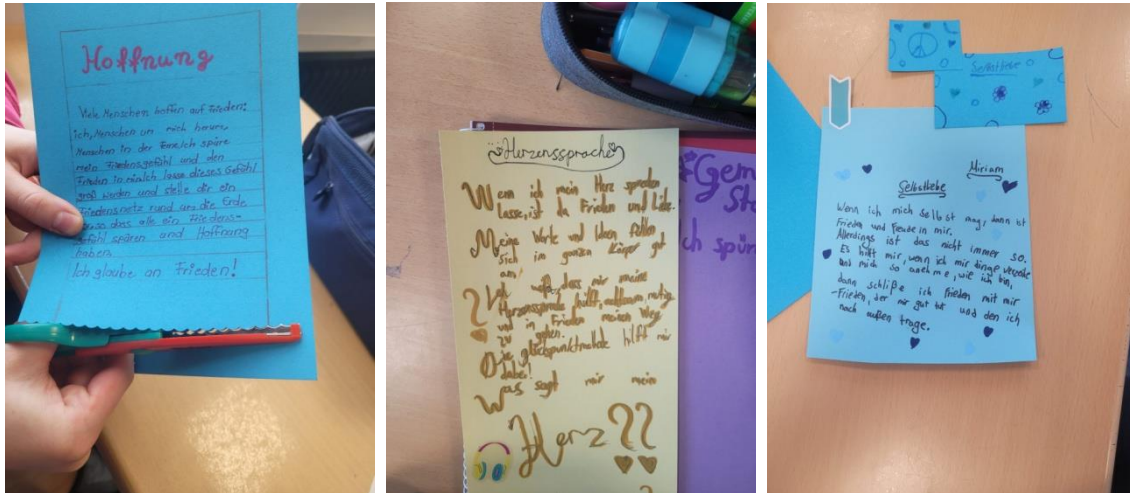 Hoffnung
Viele Menschen hoffen auf Frieden:
ich, Menschen um mich herum,
Menschen in der Ferne. Ich spüre
mein Friedensgefühl und den
Frieden in mir. Ich lasse dieses Gefühl
groß werden und stelle dir ein
Friedensnetz rund um die Erde
so dass alle ein Friedens-
gefühl spüren und Hoffnung
haben.
Ich glaube an Frieden!
Herzenssprache
Wenn ich mein Herz sprechen
lasse, ist da Frieden und Liebe.
Meine Worte und Ideen fühlen
sich im ganzen Körper gut
an!
Ich weiß, dass mir meine
Herzenssprache hilft, achtsam, mutig
und in Frieden meinen Weg
zu gehen.
Die glückspunktmethode hilft mir
dabei!
Was sagt mir mein
Herz??
?
Gem
Sta
ch spür
Selbstliebe
Miriam
Selbstliebe
Wenn ich mich selbst mag, dann ist
Frieden und Feude in mir.
Allerdings ist das nicht immer so.
Es hilft mir, wenn ich mir dinge verzeihe
und mich so annehme, wie ich bin,
dann schließe ich Frieden mit mir
-Frieden, der mir gut tut und den ich
nach außen trage.